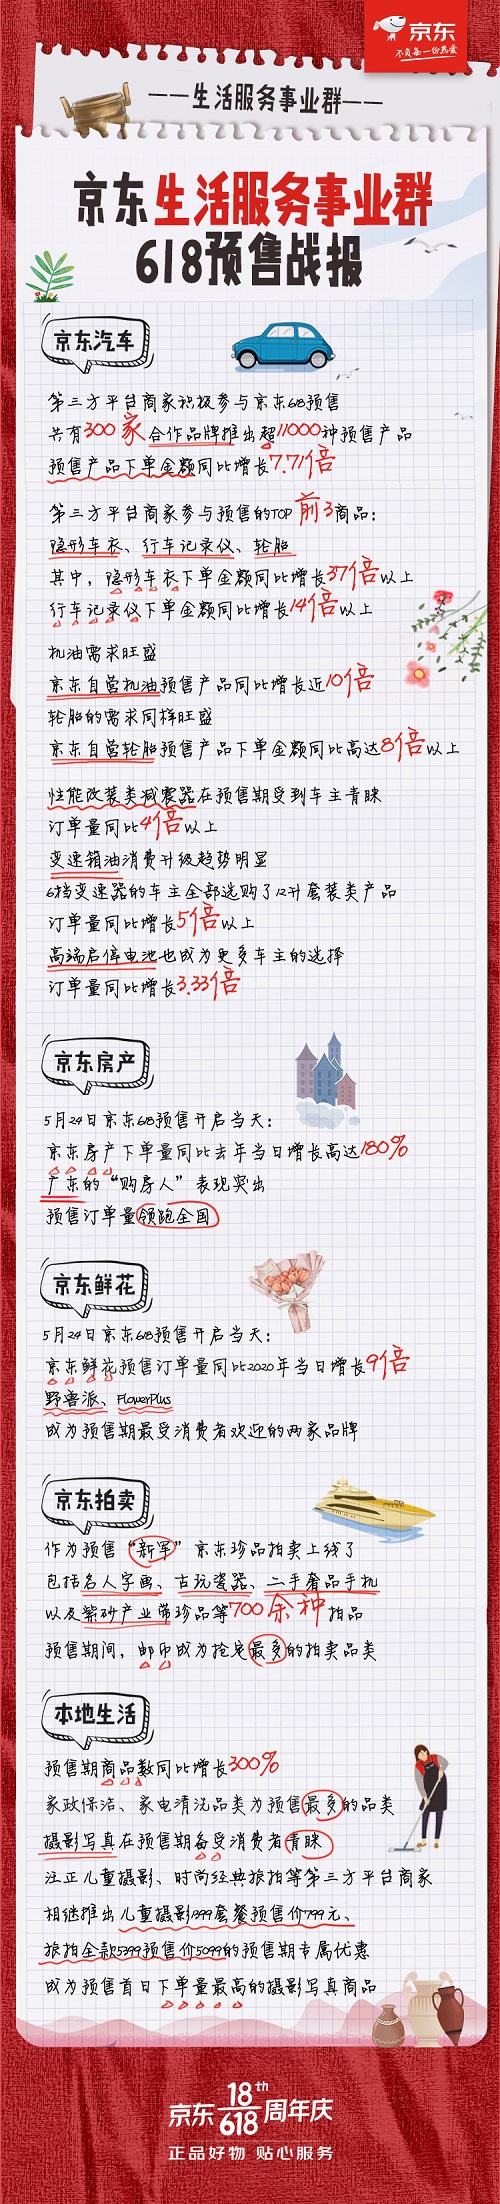 京东
不负每一份热爱
——生活服务事业群——
京东生活服务事业群
618预售战报
京东汽车
第三方平台商家积极参与京东618预售
共有300家合作品牌推出超11000种预售产品
预售产品下单金额同比增长7.71倍
第三方平台商家参与预售的TOP前3商品：
隐形车衣、行车记录仪、轮胎
其中，隐形车衣下单金额同比增长37倍以上
行车记录仪下单金额同比增长14倍以上
机油需求旺盛
京东自营机油预售产品同比增长近10倍
轮胎的需求同样旺盛
京东自营轮胎预售产品下单金额同比高达8倍以上
性能改装类减震器在预售期受到车主青睐
订单量同比4倍以上
变速箱油消费升级趋势明显
6挡变速器的车主全部选购了12升套装类产品
订单量同比增长5倍以上
高端启停电池也成为更多车主的选择
订单量同比增长3.33倍
京东房产
5月24日京东618预售开启当天：
京东房产下单量同比去年当日增长高达180%
广东的“购房人”表现突出
预售订单量领跑全国
京东鲜花
5月24日京东618预售开启当天：
京东鲜花预售订单量同比2020年当日增长9倍
野兽派、FlowerPlus
成为预售期最受消费者欢迎的两家品牌
京东拍卖
作为预售“新军”京东珍品拍卖上线了
包括名人字画、古玩瓷器、二手奢品手机
以及紫砂产业带珍品等700余种拍品
预售期间，邮币成为抢定最多的拍卖品类
本地生活
预售期商品数同比增长300%
家政保洁、家电清洗品类为预售最多的品类
摄影写真在预售期备受消费者青睐
注正儿童摄影、时尚经典旅拍等第三方平台商家
相继推出儿童摄影1999套餐预售价799元、
旅拍全款5399预售价5099的预售期专属优惠
成为预售首日下单量最高的摄影写真商品
京东 18th 618 周年庆
正品好物 贴心服务